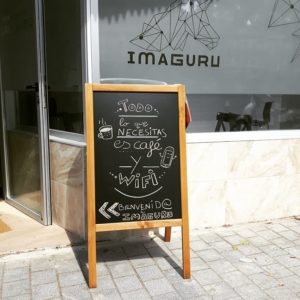 IMAGURU
TODO
lo que
NECESITAS
es café
y
WiFi
BIENVENID@
IMAGURU